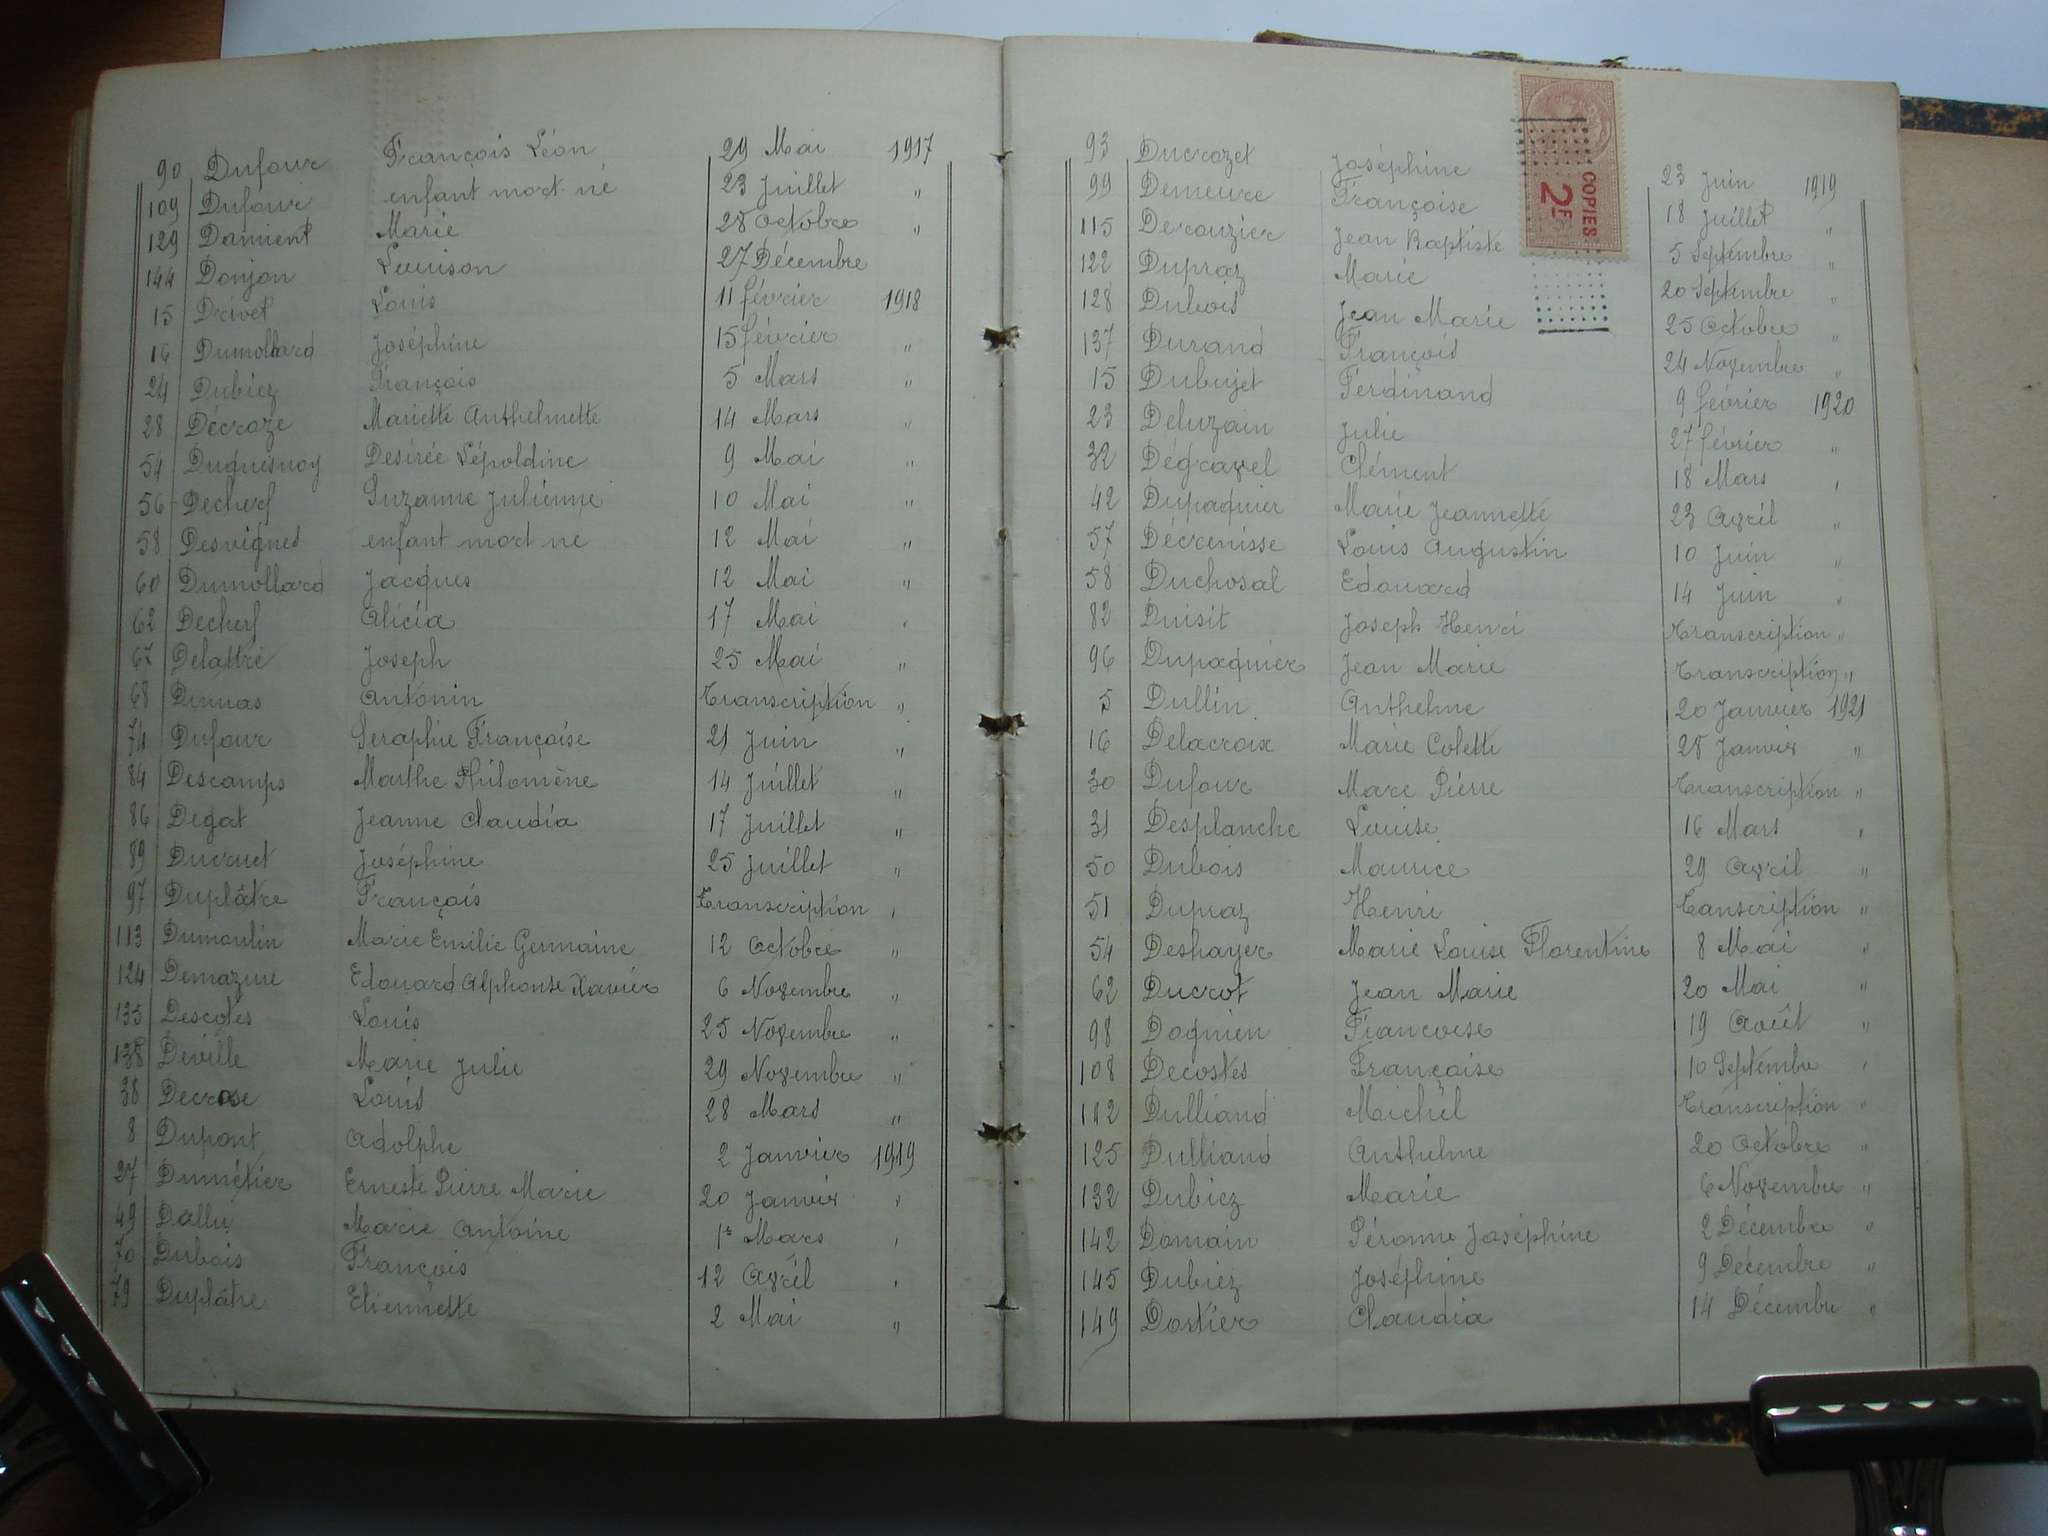 90 Dufour François Léon 29 Mai 1917
109 Dufour enfant mort né 23 Juillet "
129 Damient Marie 28 Octobre "
144 Donjon Louison 27 Décembre
15 Drivet Louis 11 février 1918
16 Dumollard Joséphine 15 février "
24 Dubiez François 5 Mars "
28 Décroze Mariette Anthelmette 14 Mars "
54 Duquesnoy Desirée Lépoldine 9 Mai "
56 Decherf Suzanne Julienne 10 Mai "
58 Desvignes enfant mort né 12 Mai "
60 Dumollard Jacques 12 Mai "
62 Decherf Alicia 17 Mai "
67 Delattre Joseph 25 Mai "
68 Antonin Transcription "
74 Dufour Seraphie Françoise 21 Juin "
84 Descamps Marthe Philomène 14 Juillet "
86 Degat Jeanne Claudia 17 Juillet "
89 Ducruet Joséphine 25 Juillet "
97 Duplâtre François Transcription "
113 Dumoulin Marie Emilie Germaine 12 Octobre "
124 Demazure Edouard Alphonse Xavier 6 Novembre "
135 Descotes Louis 25 Novembre "
138 Deville Marie Julie 29 Novembre "
38 Decrose Louis 28 Mars "
8 Dupont Adolphe 2 Janvier 1919
27 Dumétier Erneste Pierre Marie 20 Janvier "
49 Dallu Marie Antoine 1er Mars "
70 Dubois François 12 Avril "
79 Duplâtre Etiennette 2 Mai "
93 Ducrozet Joséphine 23 Juin 1919
99 Demeure Françoise 18 Juillet "
115 Derouzier Jean Baptiste 5 Septembre "
122 Dupraz Marie 20 Septembre "
128 Dubois Jean Marie 25 Octobre "
137 Durand François 24 Novembre "
15 Dubujet Ferdinand 9 février 1920
23 Deluzain Julie 27 février "
32 Dégravel Clément 18 Mars "
42 Dupaquier Marie Jeannette 23 Avril "
57 Décrenisse Louis Augustin 10 Juin "
58 Duchosal Edouard 14 Juin "
82 Duisit Joseph Henri Transcription "
96 Dupaquier Jean Marie Transcription "
5 Dullin Anthelme 20 Janvier 1921
16 Delacroix Marie Colette 28 Janvier "
30 Dufour Marc Pierre Transcription "
31 Desplanche Louise 16 Mars "
50 Dubois Maurice 29 Avril "
51 Dupraz Henri Transcription "
54 Deshayer Marie Louise Florentine 8 Mai "
62 Ducrot Jean Marie 20 Mai "
98 Dagnien Francoise 19 Août "
108 Decostes Françoise 10 Septembre "
112 Dulliand Michel Transcription "
125 Dulliand Anthelme 20 Octobre "
132 Dubiez Marie 6 Novembre "
142 Domain Péronne Joséphine 2 Décembre "
145 Dubiez Joséphine 9 Décembre "
149 Dortier Claudia 14 Décembre "
COPIES
2F